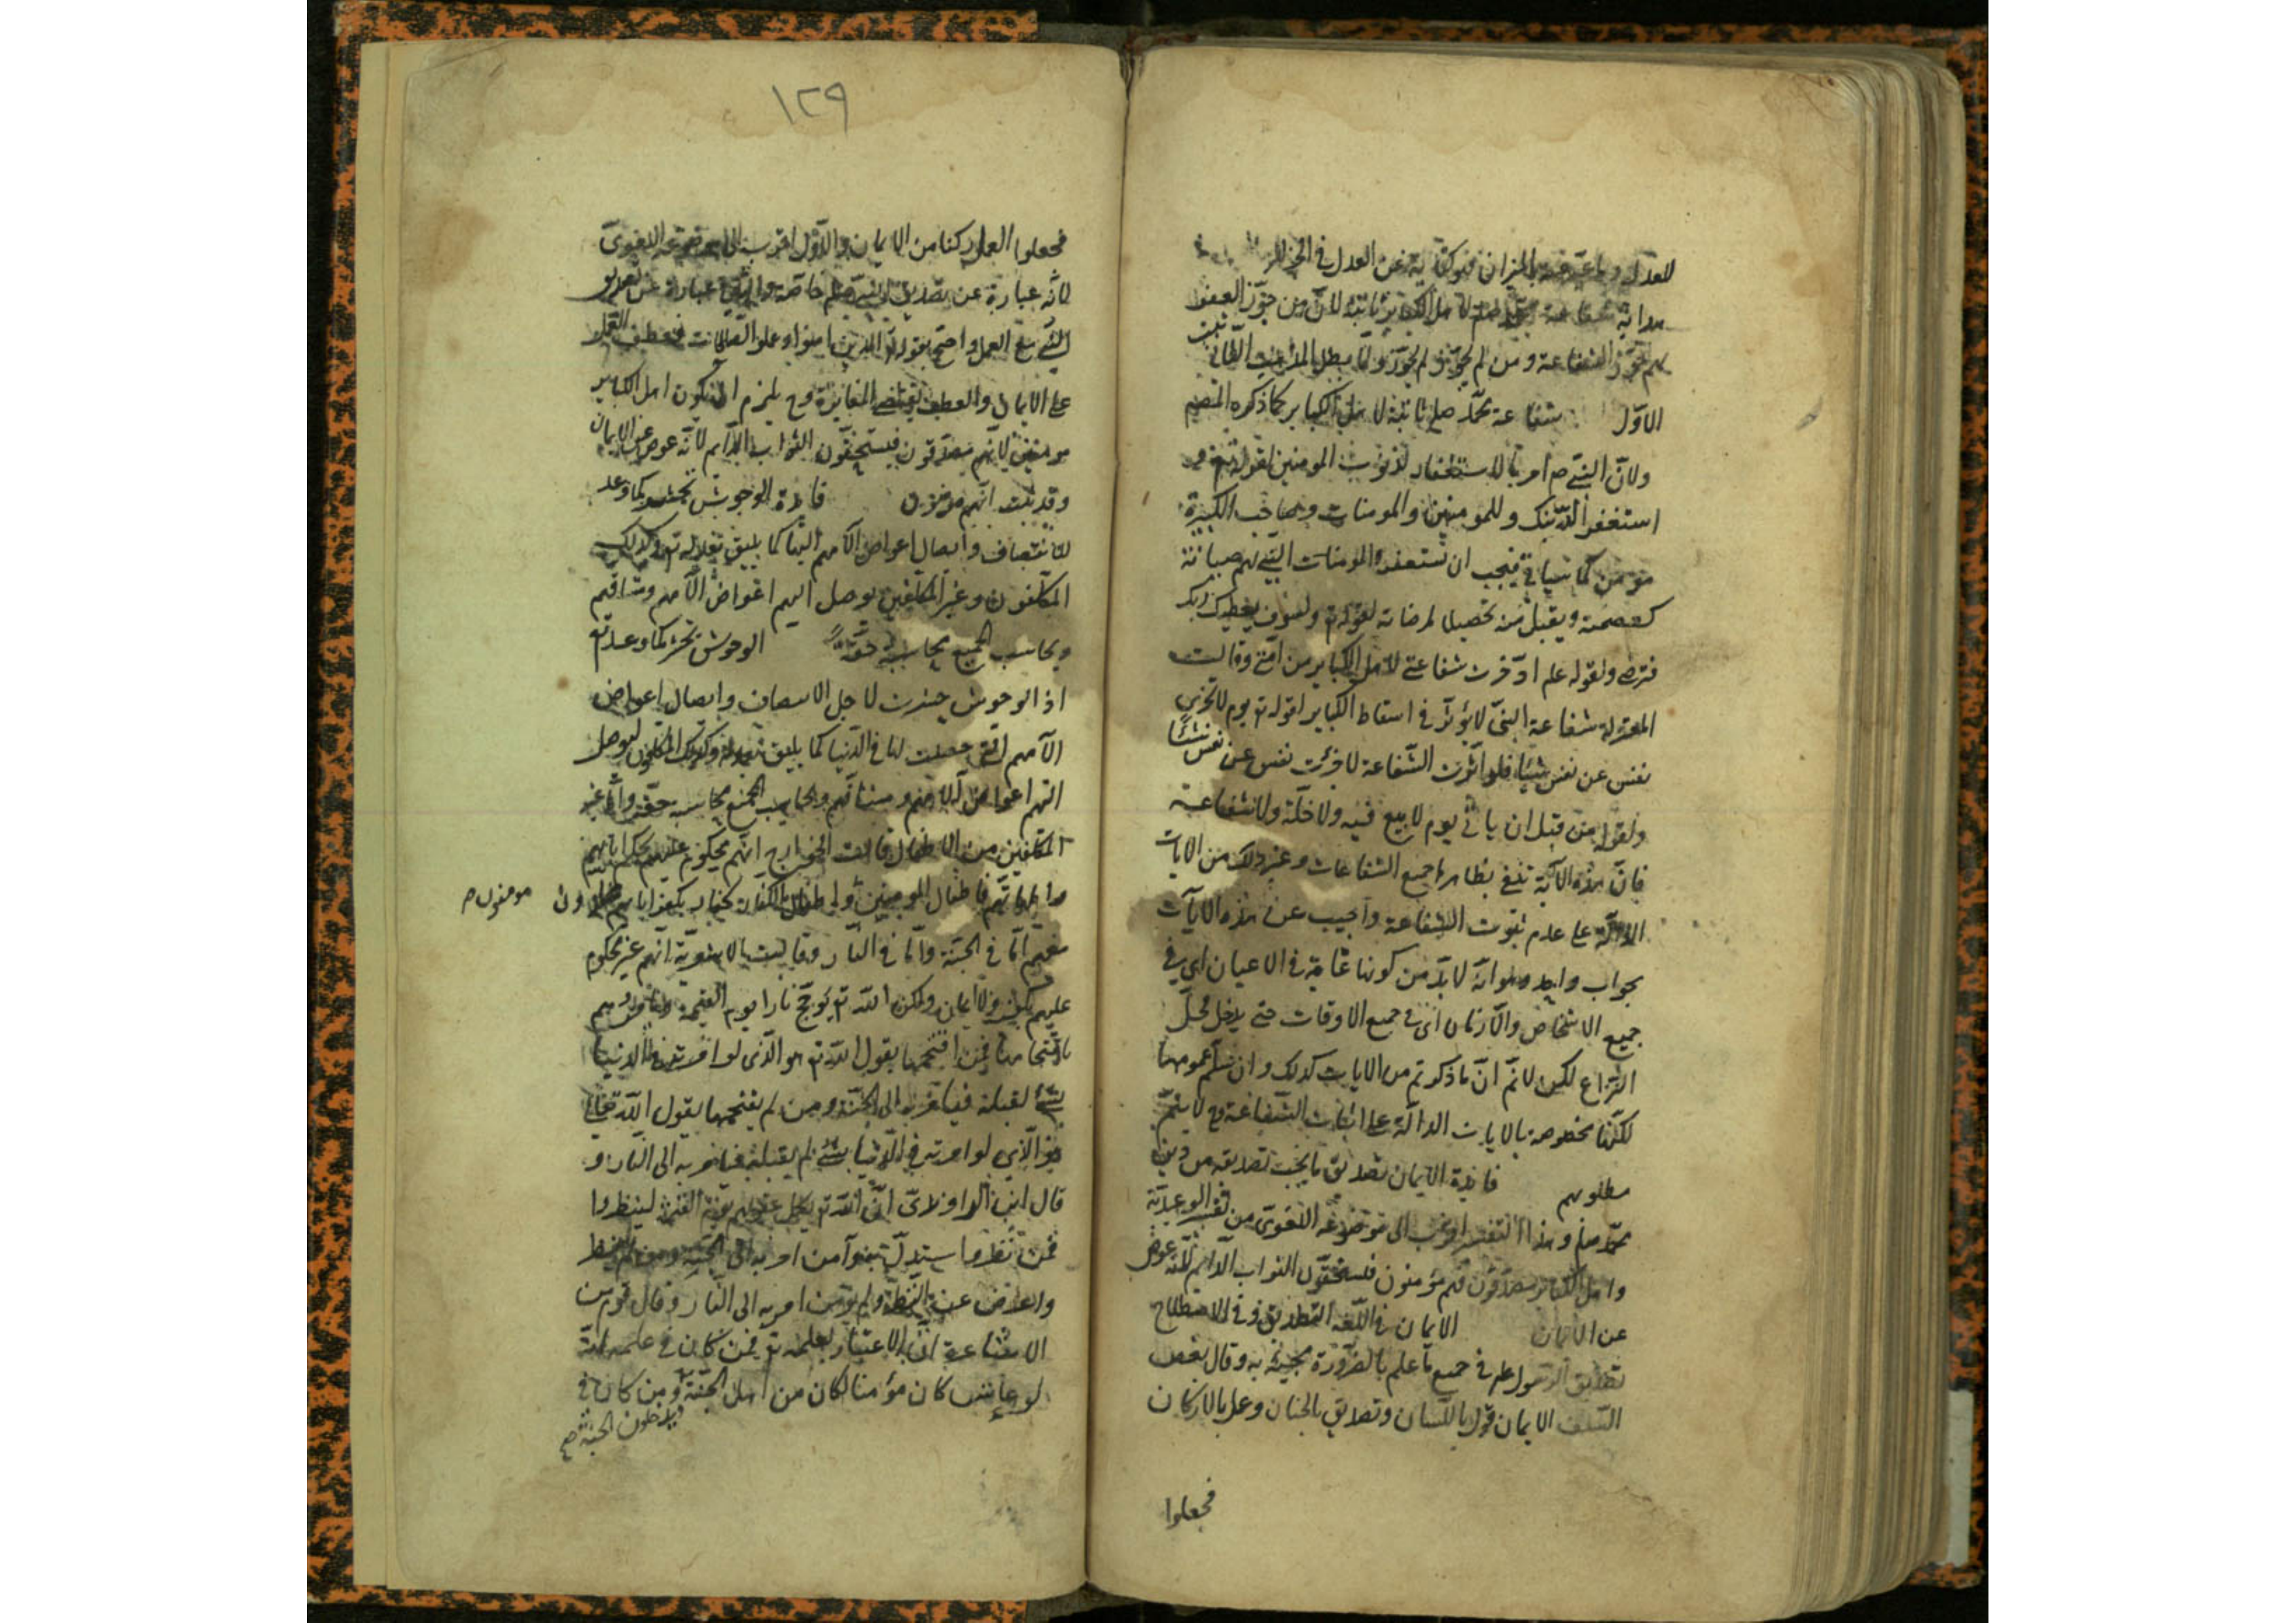 للعدل وما عبر عنه بالميزان فهو كناية عن العدل في الجزاء
هداية شفاعة محمد صلعم لاهل الكباير ثابتة لان من جوز العفو
لهم جوز الشفاعة ومن لم يجوز لم يجوز ولما بطل المذهب الثاني ثبت
الاول شفاعة محمد صلعم ثابتة لاهل الكباير كما ذكره المصنف
ولان النبي ص امر بالاستغفار لذنوب المومنين لقوله تع
استغفر لذنبك وللمومنين والمومنات وصاحب الكبيرة
مومن كما سياتي فيجب ان يستغفر
لعصمته ويقبل منه تحصيلا لمرضاته لقوله تع ولسوف يعطيك ربك
فترضى ولقوله علم ادخرت شفاعتي لاهل الكباير من امتي وقالت
المعتزلة شفاعة النبي لا يؤثر في اسقاط الكباير لقوله تع يوم لا تجزى
نفس عن نفس شيئا فلو اثرت الشفاعة لاجزئت نفس عن نفس شيئا
ولقوله من قبل ان ياتي يوم لا بيع فيه ولا خلة ولا شفاعة
فان هذه الآية تنفي بظاهرها جميع الشفاعات وغير ذلك من الايات
الدالة على عدم ثبوت الشفاعة واجيب عن هذه الايات
بجواب واحد وهو انه لابد من كونها عامة في الاعيان اي في
جميع الاشخاص والازمان اي في جميع الاوقات حتى يدخل محل
النزاع لكن لانم ان ما ذكرتم من الايات كذلك وان سلم عمومها
لكنها مخصوصة بالايات الدالة على اثبات الشفاعة وح لا يتم
مطلوبهم فايدة الايمان تصديق ما يجب تصديقه من دين
محمد صلعم وهذا التفسير اقرب الى موضوعه اللغوي من تفسير الوعيدية
واهل الكباير مصدقون فهم مؤمنون فيستحقون الثواب الدايم لانه عوض
عن الايمان الايمان في اللغة التصديق وفي الاصطلاح
تصديق الرسول علم في جميع ما علم بالضرورة مجيئه به وقال بعض
السلف الايمان قول باللسان وتصديق بالجنان وعمل بالاركان
فجعلوا
١٢٩
فجعلوا العمل ركنا من الايمان والاول اقرب الى موضوعه اللغوي
لانه عبارة عن تصديق النبي صلعم خاصة والثاني عبارة عن تصديق
النبي مع العمل واحتج بقوله تع الذين امنوا وعملوا الصالحات فعطف العمل
على الايمان والعطف يقتضي المغايرة وح يلزم ان يكون اهل الكباير
مومنين لانهم مصدقون فيستحقون الثواب الدايم لانه عوض عن الايمان
وقد ثبت انهم مؤمنون فايدة الوحوش تحشر كما وعد
للانتصاف وايصال اعواض الآمهم اليها كما يليق بعدله تع وكذلك
المكلفون وغير المكلفين يوصل اليهم اعواض الآمهم ومشاقهم
ويحاسب الجميع محاسبة حقة الوحوش تحشر كما وعد تع
اذا الوحوش حشرت لاجل الانصاف وايصال اعواض
الآمهم التي حصلت لها في الدنيا كما يليق بعدله وكذلك المكلفون ليوصل
اليهم اعواض الامهم ومشاقهم ويحاسب الجميع محاسبة حقة واما غير
المكلفين من الاطفال قالت الخوارج انهم محكوم عليهم بحكم ابائهم
وامهاتهم فاطفال المومنين واطفال الكفار كفار بكفر ابائهم
مومنون ص
معهم اما في الجنة واما في النار وقالت الاشعرية انهم غير محكوم
عليهم بكفر ولا ايمان ولكن الله تع يوجج نارا يوم القيمة
باقتحامها فمن اقتحمها يقول الله تع هو الذي لو امرته في الدنيا
بشئ لقبله فيامر به الى الجنة ومن لم يقتحمها يقول الله تعالى
هو الذي لو امرته في الدنيا بشئ لم يقبله فيامر به الى النار و
قال ابن الراوندي ان الله تع يكمل عقولهم يوم القيمة لينظروا
فمن نظر واستدل آمن امر به الى الجنة ومن لم ينظر
واعرض عن النظر ولم يؤمن امر به الى النار وقال قوم من
الاشاعرة ان الاعتبار بعلمه تع فمن كان في علمه انه
لو عاش كان مؤمنا لكان من اهل الجنة ومن كان في
ويدخلون الجنة صح